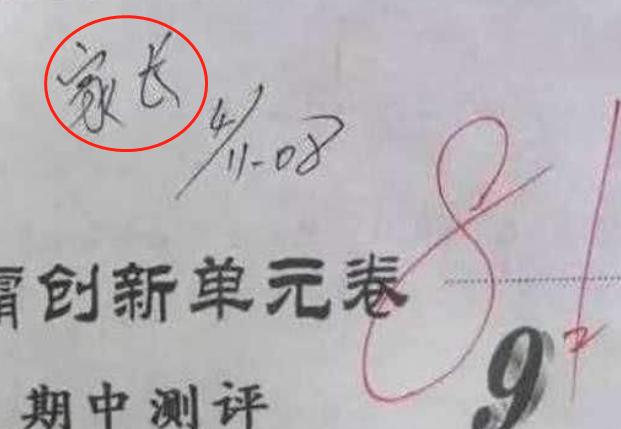 家长
4/11-08
81
创新单元卷
9
期中测评